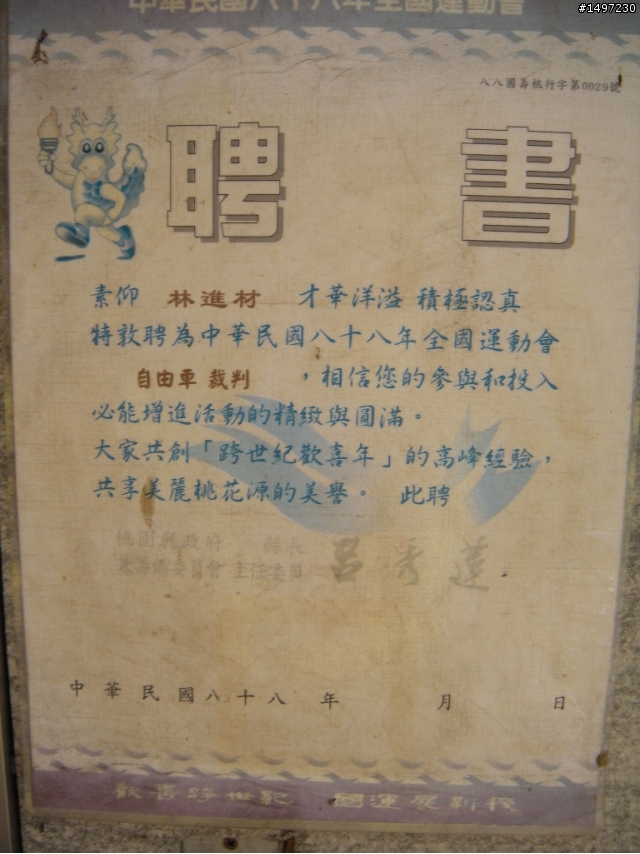 #1497230
中華民國八十八年全國運動會
八八國籌桃行字第0029號
聘 書
素仰 林進材 才華洋溢 積極認真
特敦聘為中華民國八十八年全國運動會
自由車 裁判 ，相信您的參與和投入
必能增進活動的精緻與圓滿。
大家共創「跨世紀歡喜年」的高峰經驗，
共享美麗桃花源的美譽。 此聘
桃園縣政府 縣長
籌備委員會 主任委員 呂秀蓮
中華民國八十八年 月 日
歡喜跨世紀 國運展新機